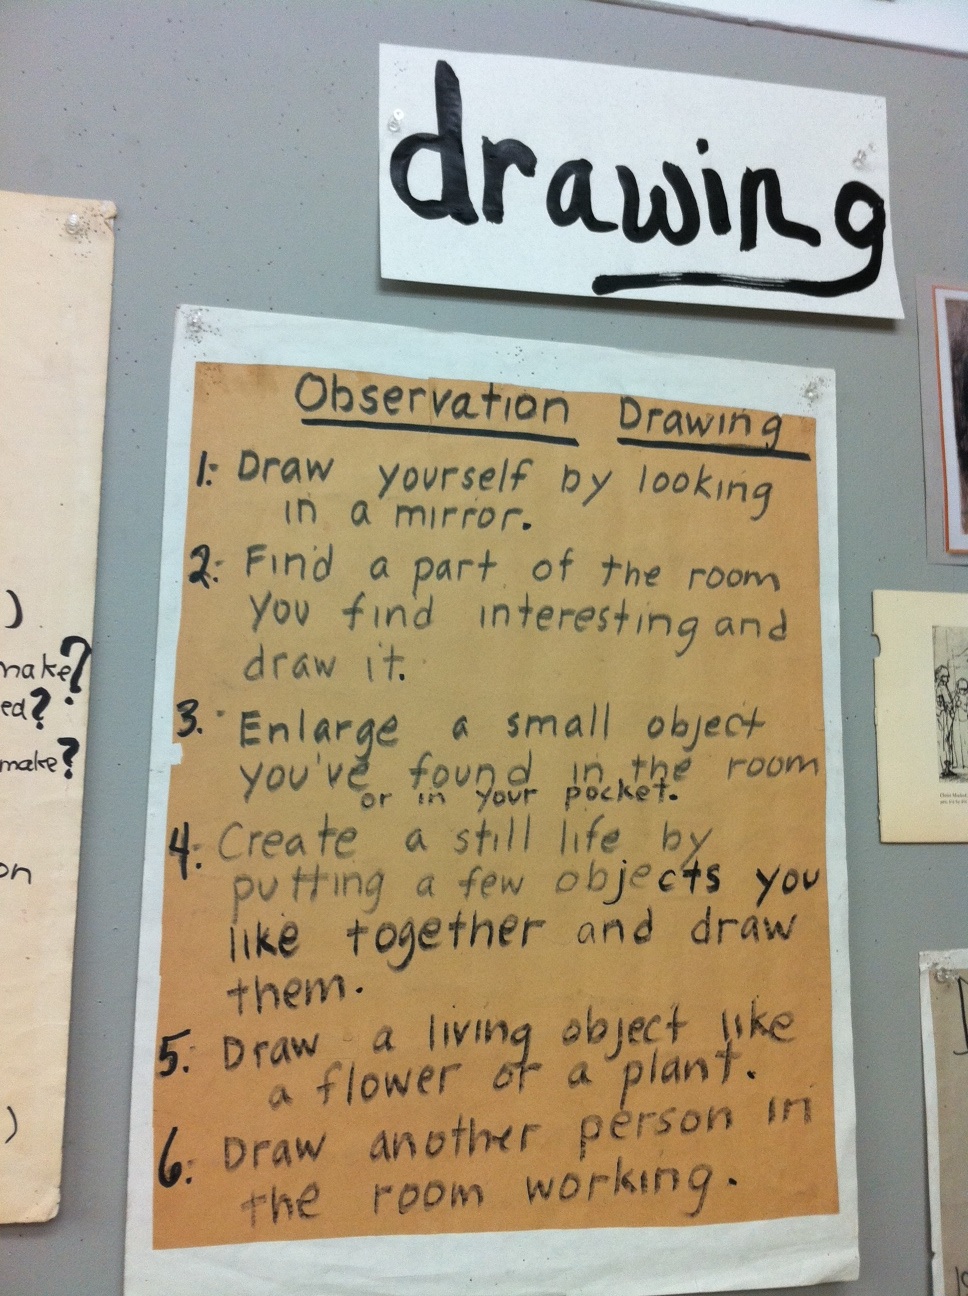 drawing
Observation Drawing
1. Draw yourself by looking
in a mirror.
2. Find a part of the room
you find interesting and
draw it.
3. Enlarge a small object
you've found in the room
or in your pocket.
4. Create a still life by
putting a few objects you
like together and draw
them.
5. Draw a living object like
a flower or a plant.
6. Draw another person in
the room working.
)
make?
ed?
make?
on
)